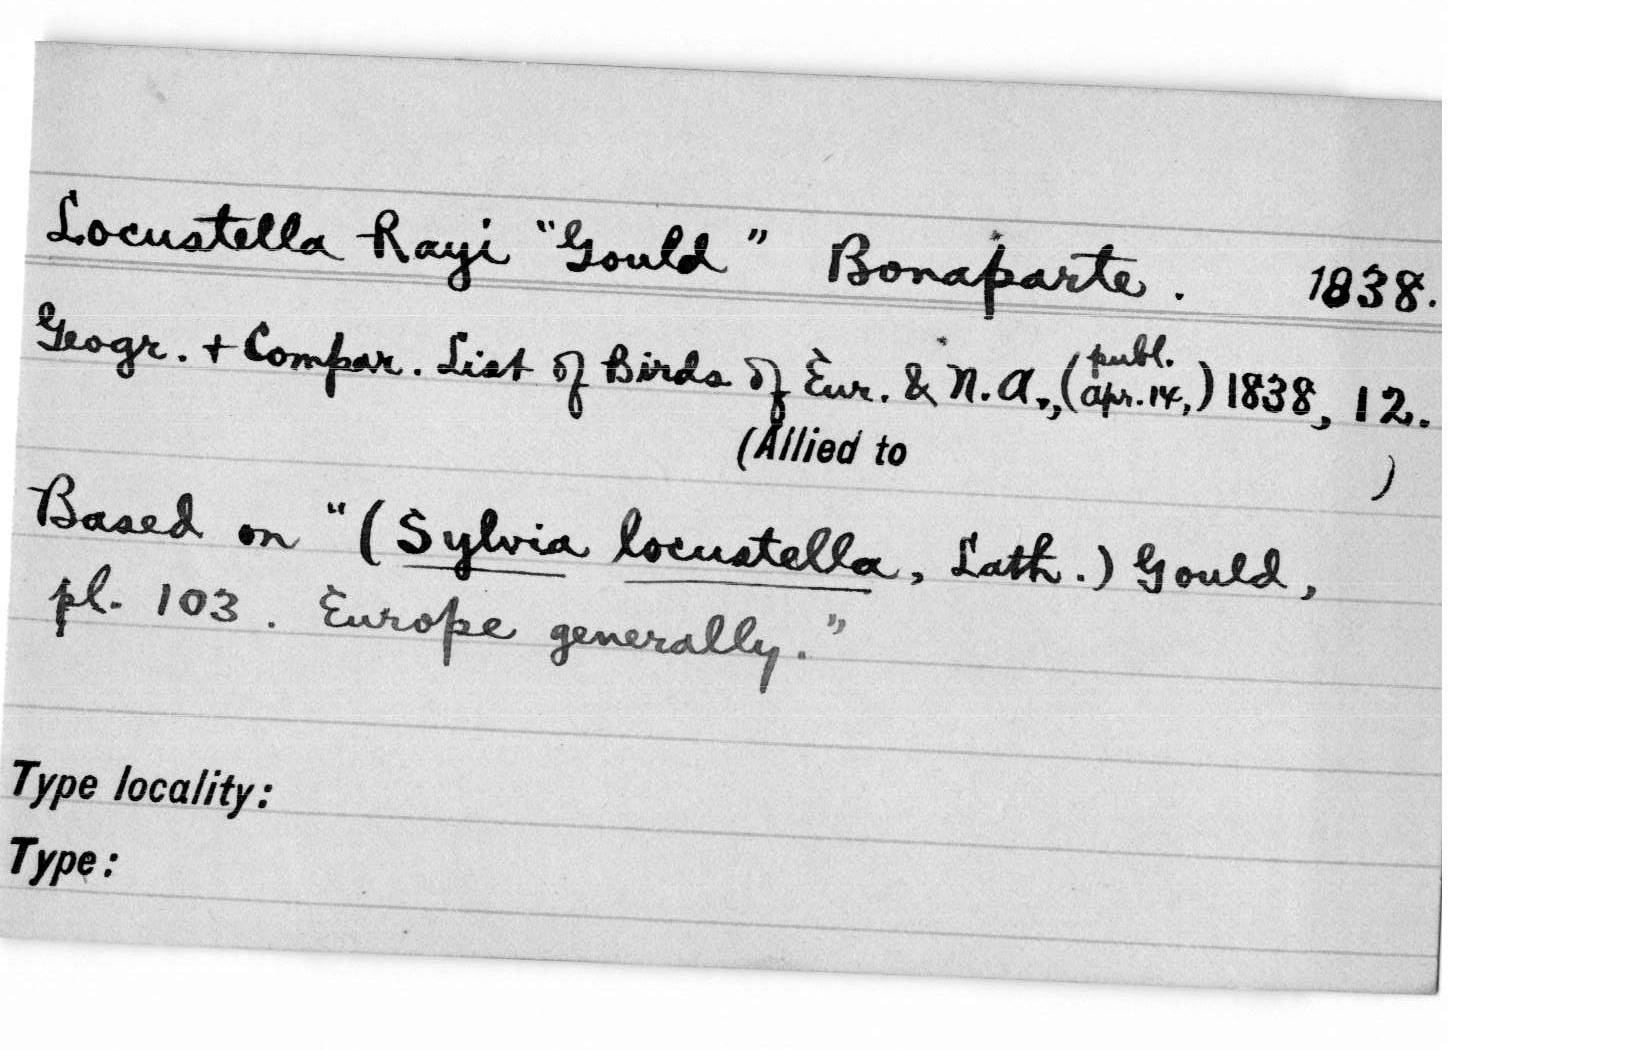 Locustella Rayi "Gould" Bonaparte. 1838.
Geogr. + Compar. List of Birds of Eur. & N.A., (publ. Apr. 14,) 1838, 12.
(Allied to )
Based on "(Sylvia locustella, Lath.) Gould,
pl. 103. Europe generally."
Type locality:
Type: